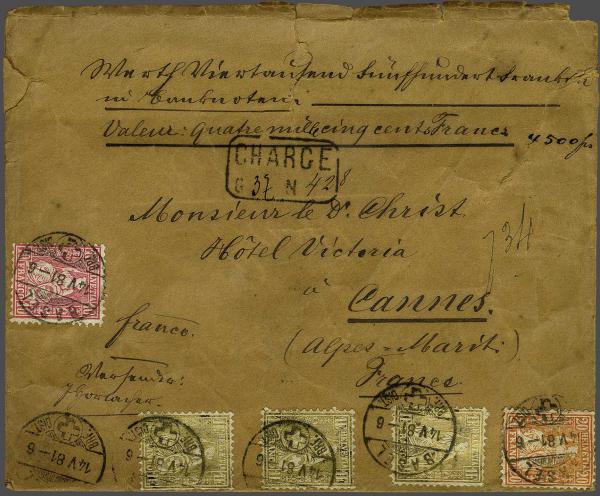 Werth Viertausend Fünfhundert Franken
in Banknoten.
Valeur: Quatre mille cinq cents Francs 4500 frs
CHARGÉ
G 37 N 428
Monsieur le Dr. Christ
Hôtel Victoria
à
Cannes.
(Alpes-Marit:)
France
franco.
Versender:
BASEL
14 V 81-6
14 V 81-6
14 V 81-6
14 V 81-6
BASEL
14 V 81-6
BASEL
14 V 81-6